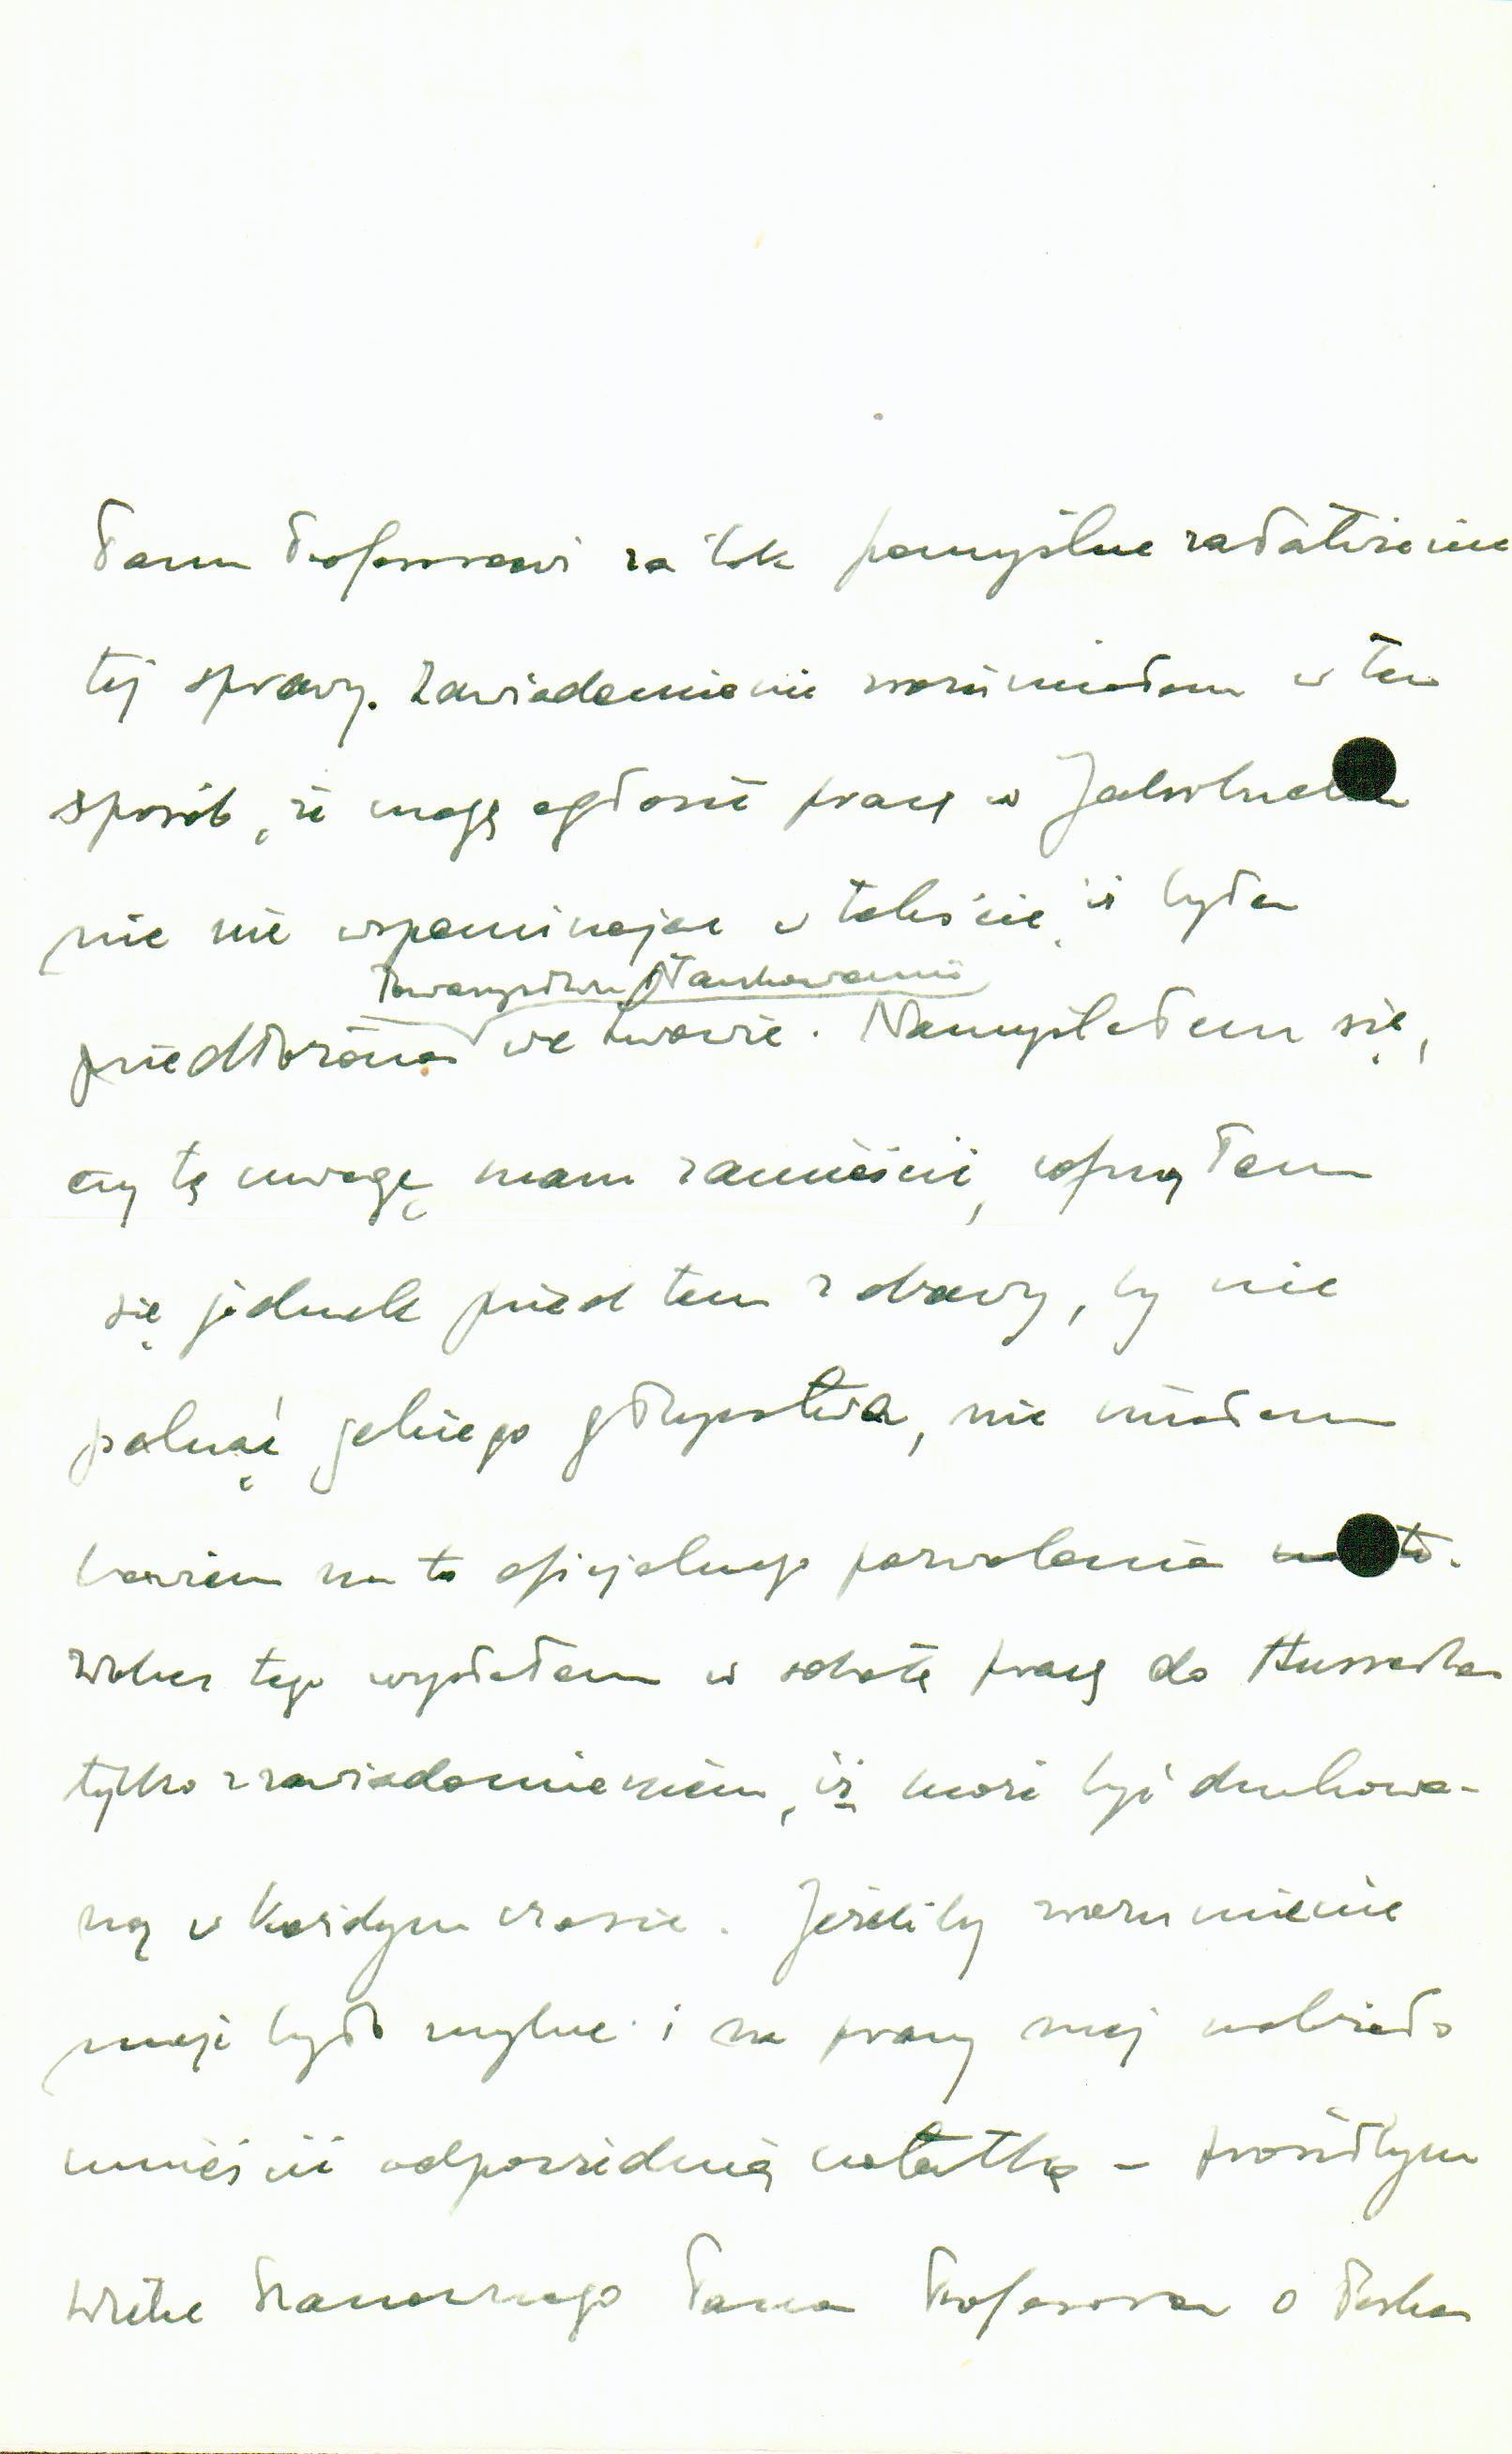 Panu Profesorowi za tak pomyślne załatwienie
tej sprawy. Zawiadomienie zrozumiałem w ten
sposób, że mogę ogłosić pracę w
nic nie wspominając w tekście, iż była
Towarzystwu Naukowemu
przedłożona we Lwowie. Namyślałem się,
czy tę uwagę mam zamieścić,
się jednak przed tem z obawy, by nie
palnąć jakiego głupstwa, nie miałem
bowiem na to oficjalnego pozwolenia
Wobec tego wysłałem w sobotę pracę do Husserla
tylko z zawiadomieniem, iż może być drukowa-
ną w każdym czasie. Jeżeliby zrozumienie
moje było mylne i na pracy mej należało
umieścić odpowiednią notatkę – prosiłbym
wielce Szanownego Pana Profesora o łaska